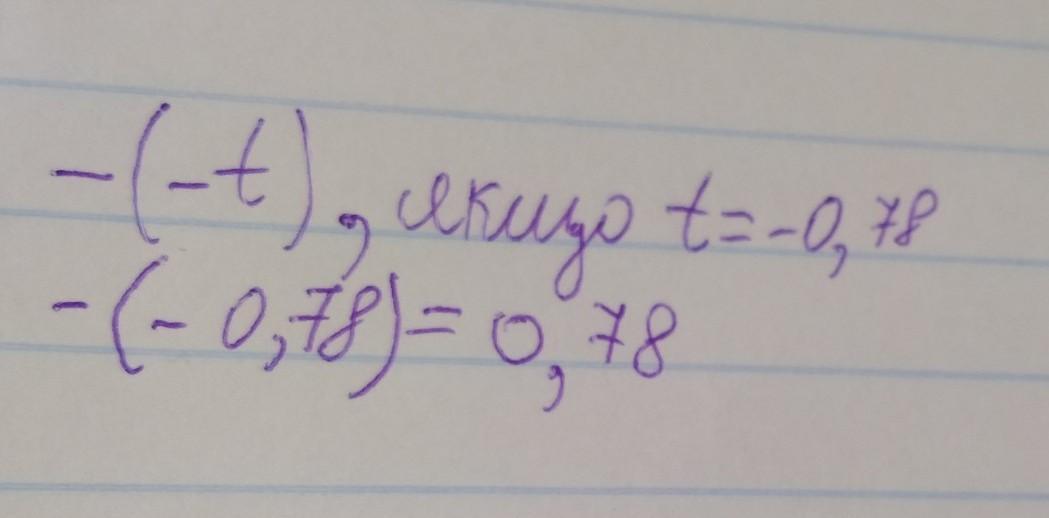 -(-t), якщо t=-0,78
-(-0,78)=0,78